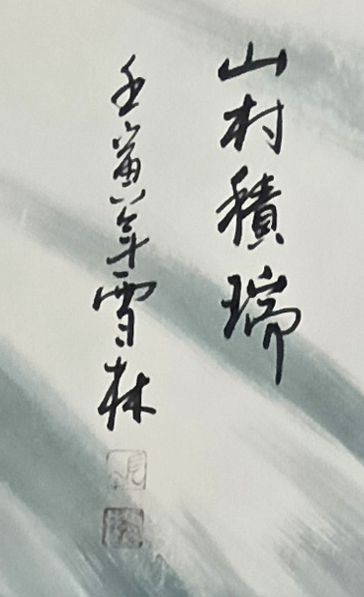 山村積瑞
壬寅年雪林